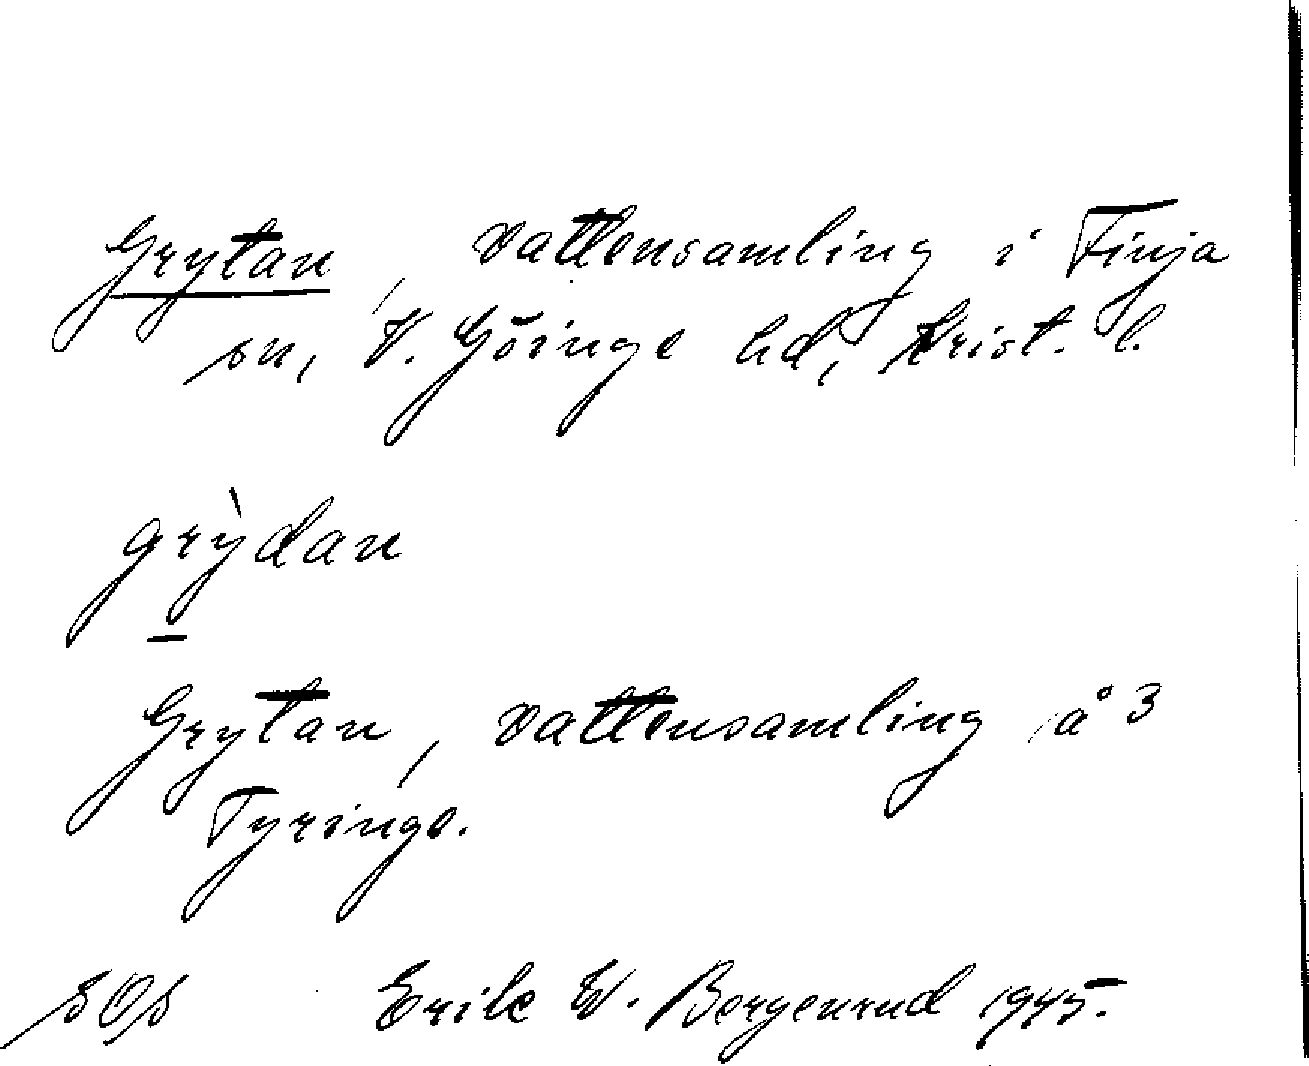 Grytan, vattensamling i Finja
sn, V. Göinge hd, Krist. l.
grỳdan
Grytan, vattensamling å 3
Tyringe.
SOS Erik W. Bergenrud 1945.